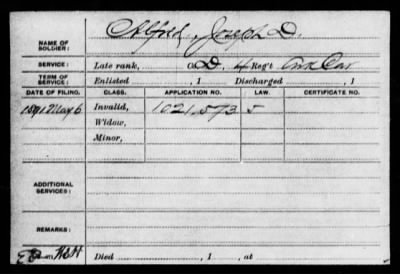 NAME OF SOLDIER: Alfred, Joseph D.
SERVICE: Late rank, Co. D, 4 Reg't Ark Cav
TERM OF SERVICE: Enlisted , 1 Discharged , 1
DATE OF FILING. CLASS. APPLICATION NO. LAW. CERTIFICATE NO.
1891 May 6 Invalid, 1021,573 5
Widow,
Minor,
ADDITIONAL SERVICES:
REMARKS:
Died , 1 , at